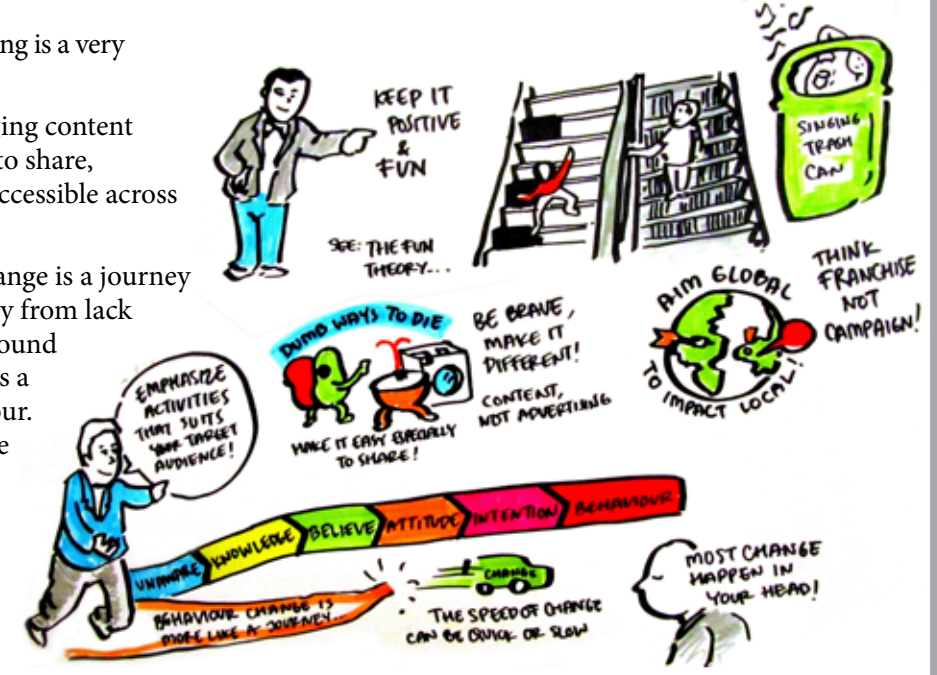 ng is a very
ing content
to share,
ccessible across
ange is a journey
y from lack
ound
s a
our.
e
KEEP IT
POSITIVE
&
FUN
SEE: THE FUN
THEORY...
SINGING
TRASH
CAN
DUMB WAYS TO DIE
MAKE IT EASY ESPECIALLY
TO SHARE!
BE BRAVE,
MAKE IT
DIFFERENT!
CONTENT,
NOT ADVERTISING
AIM GLOBAL
TO IMPACT LOCAL!
THINK
FRANCHISE
NOT
CAMPAIGN!
EMPHASIZE
ACTIVITIES
THAT SUITS
YOUR TARGET
AUDIENCE!
UNAWARE
KNOWLEDGE
BELIEVE
ATTITUDE
INTENTION
BEHAVIOUR
BEHAVIOUR CHANGE IS
MORE LIKE A JOURNEY...
CHANGE
THE SPEED OF CHANGE
CAN BE QUICK OR SLOW
MOST CHANGE
HAPPEN IN
YOUR HEAD!